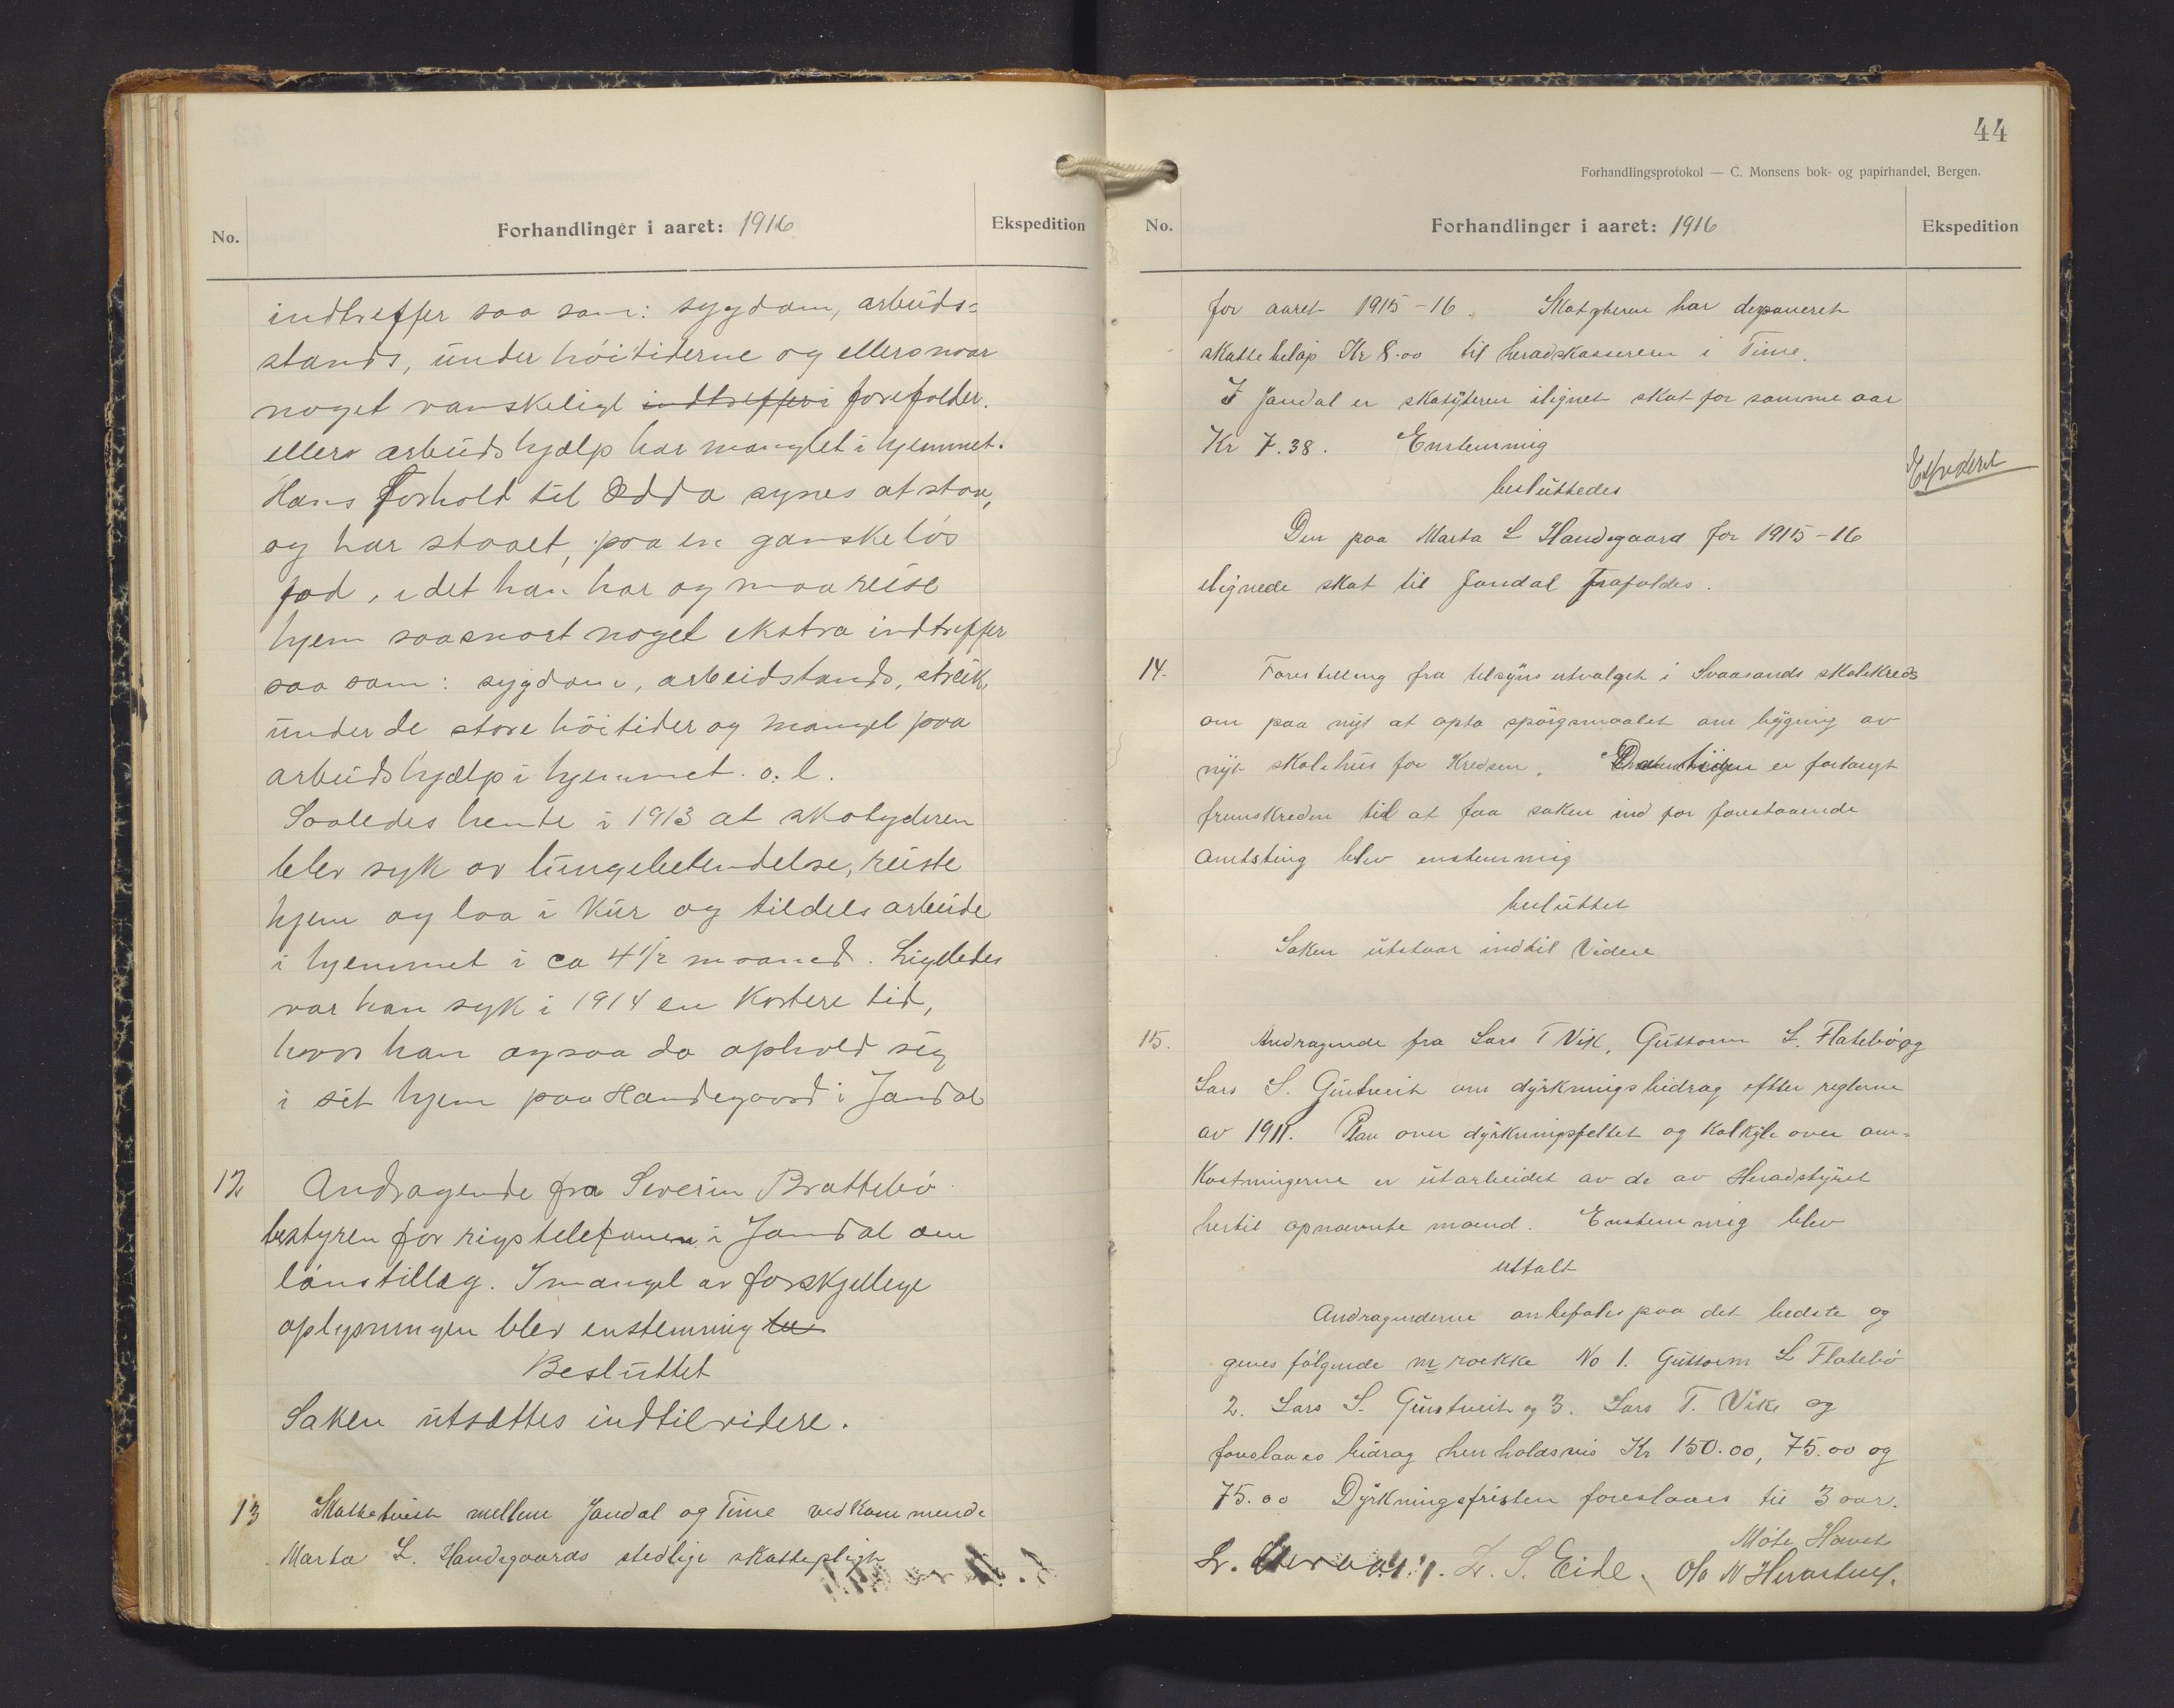 No.
Forhandlinger i aaret: 1916
Ekspedition
indtreffer saa som: sygdom, arbeids-
stands, under höitiderne og ellers naar
noget vanskeligt indtreffer i forefalder.
ellers arbeidshjælp har manglet i hjemmet.
Hans Forhold til Odda synes at staa,
og har staaet, paa en ganske lös
fod, idet han har og maa reise
hjem saasnart noget ekstra indtreffer
saa som: sygdom, arbeidstands, streik,
under de store höitider og mangel paa
arbeidshjælp i hjemmet. o. l.
Saaledes hente i 1913 at skatyderen
blev syk av lungebetendelse, reiste
hjem og laa i kur og tildels arbeide
i hjemmet i ca 4 1/2 maaned. Ligeledes
var han syk i 1914 en kortere tid,
hvor han ogsaa da ophold sig
i sit hjem paa Handegaard i Jondal
12 Andragende fra Severin Brattebö
bestyren for rigstelefonen i Jondal om
lönstillæg. I mangel av forskjellige
oplysningen blev enstemmig
Besluttet
Saken utsættes indtil videre.
13 Skattetvist mellem Jondal og Time vedkommende
Marta L. Handegaards stedlige skattepligt
44
Forhandlingsprotokol — C. Monsens bok- og papirhandel, Bergen.
No.
Forhandlinger i aaret: 1916
Ekspedition
for aaret 1915-16. Skatyteren har deponeret
skattebelöp Kr 8.00 til heradskassereren i Time.
I Jondal er skatyteren ilignet skat for samme aar
Kr 7.38. Enstemmig
besluttedes
Ekspederet
Den paa Marta L Handegaard for 1915-16
ilignede skat til Jondal frafaldes.
14. Forestilling fra tilsynsutvalget i Svaasands skolekreds
om paa nyt at opta spörgsmaalet om bygning av
nyt skolehus for Kredsen. er forlangt
fremskreden tid at faa saken ind for forestaaende
amtsting blev enstemmig
besluttet
Saken utstaar indtil Videre
15. Andragende fra Lars T Vik, Guttorm L. Flatebö og
Lars S. Giutveit om dyrkningsbidrag efter reglerne
av 1911. Plan over dyrkningsfeltet og Kalkyle over om-
kostningerne er utarbeidet av de av Heradstyret
hertil opnævnte mænd. Enstemmig blev
uttalt
Andragenderne anbefales paa det bedste og
gives fölgende nr række No 1. Guttorm L Flatebö
2. Lars S. Giutveit og 3. Lars T. Vike og
foreslaaes bidrag henholdsvis Kr 150.00, 75.00 og
75.00 Dyrkningsfristen foreslaaes til 3 aar.
Möte Hævet
L. S. Eide. Ola N Herastveit.